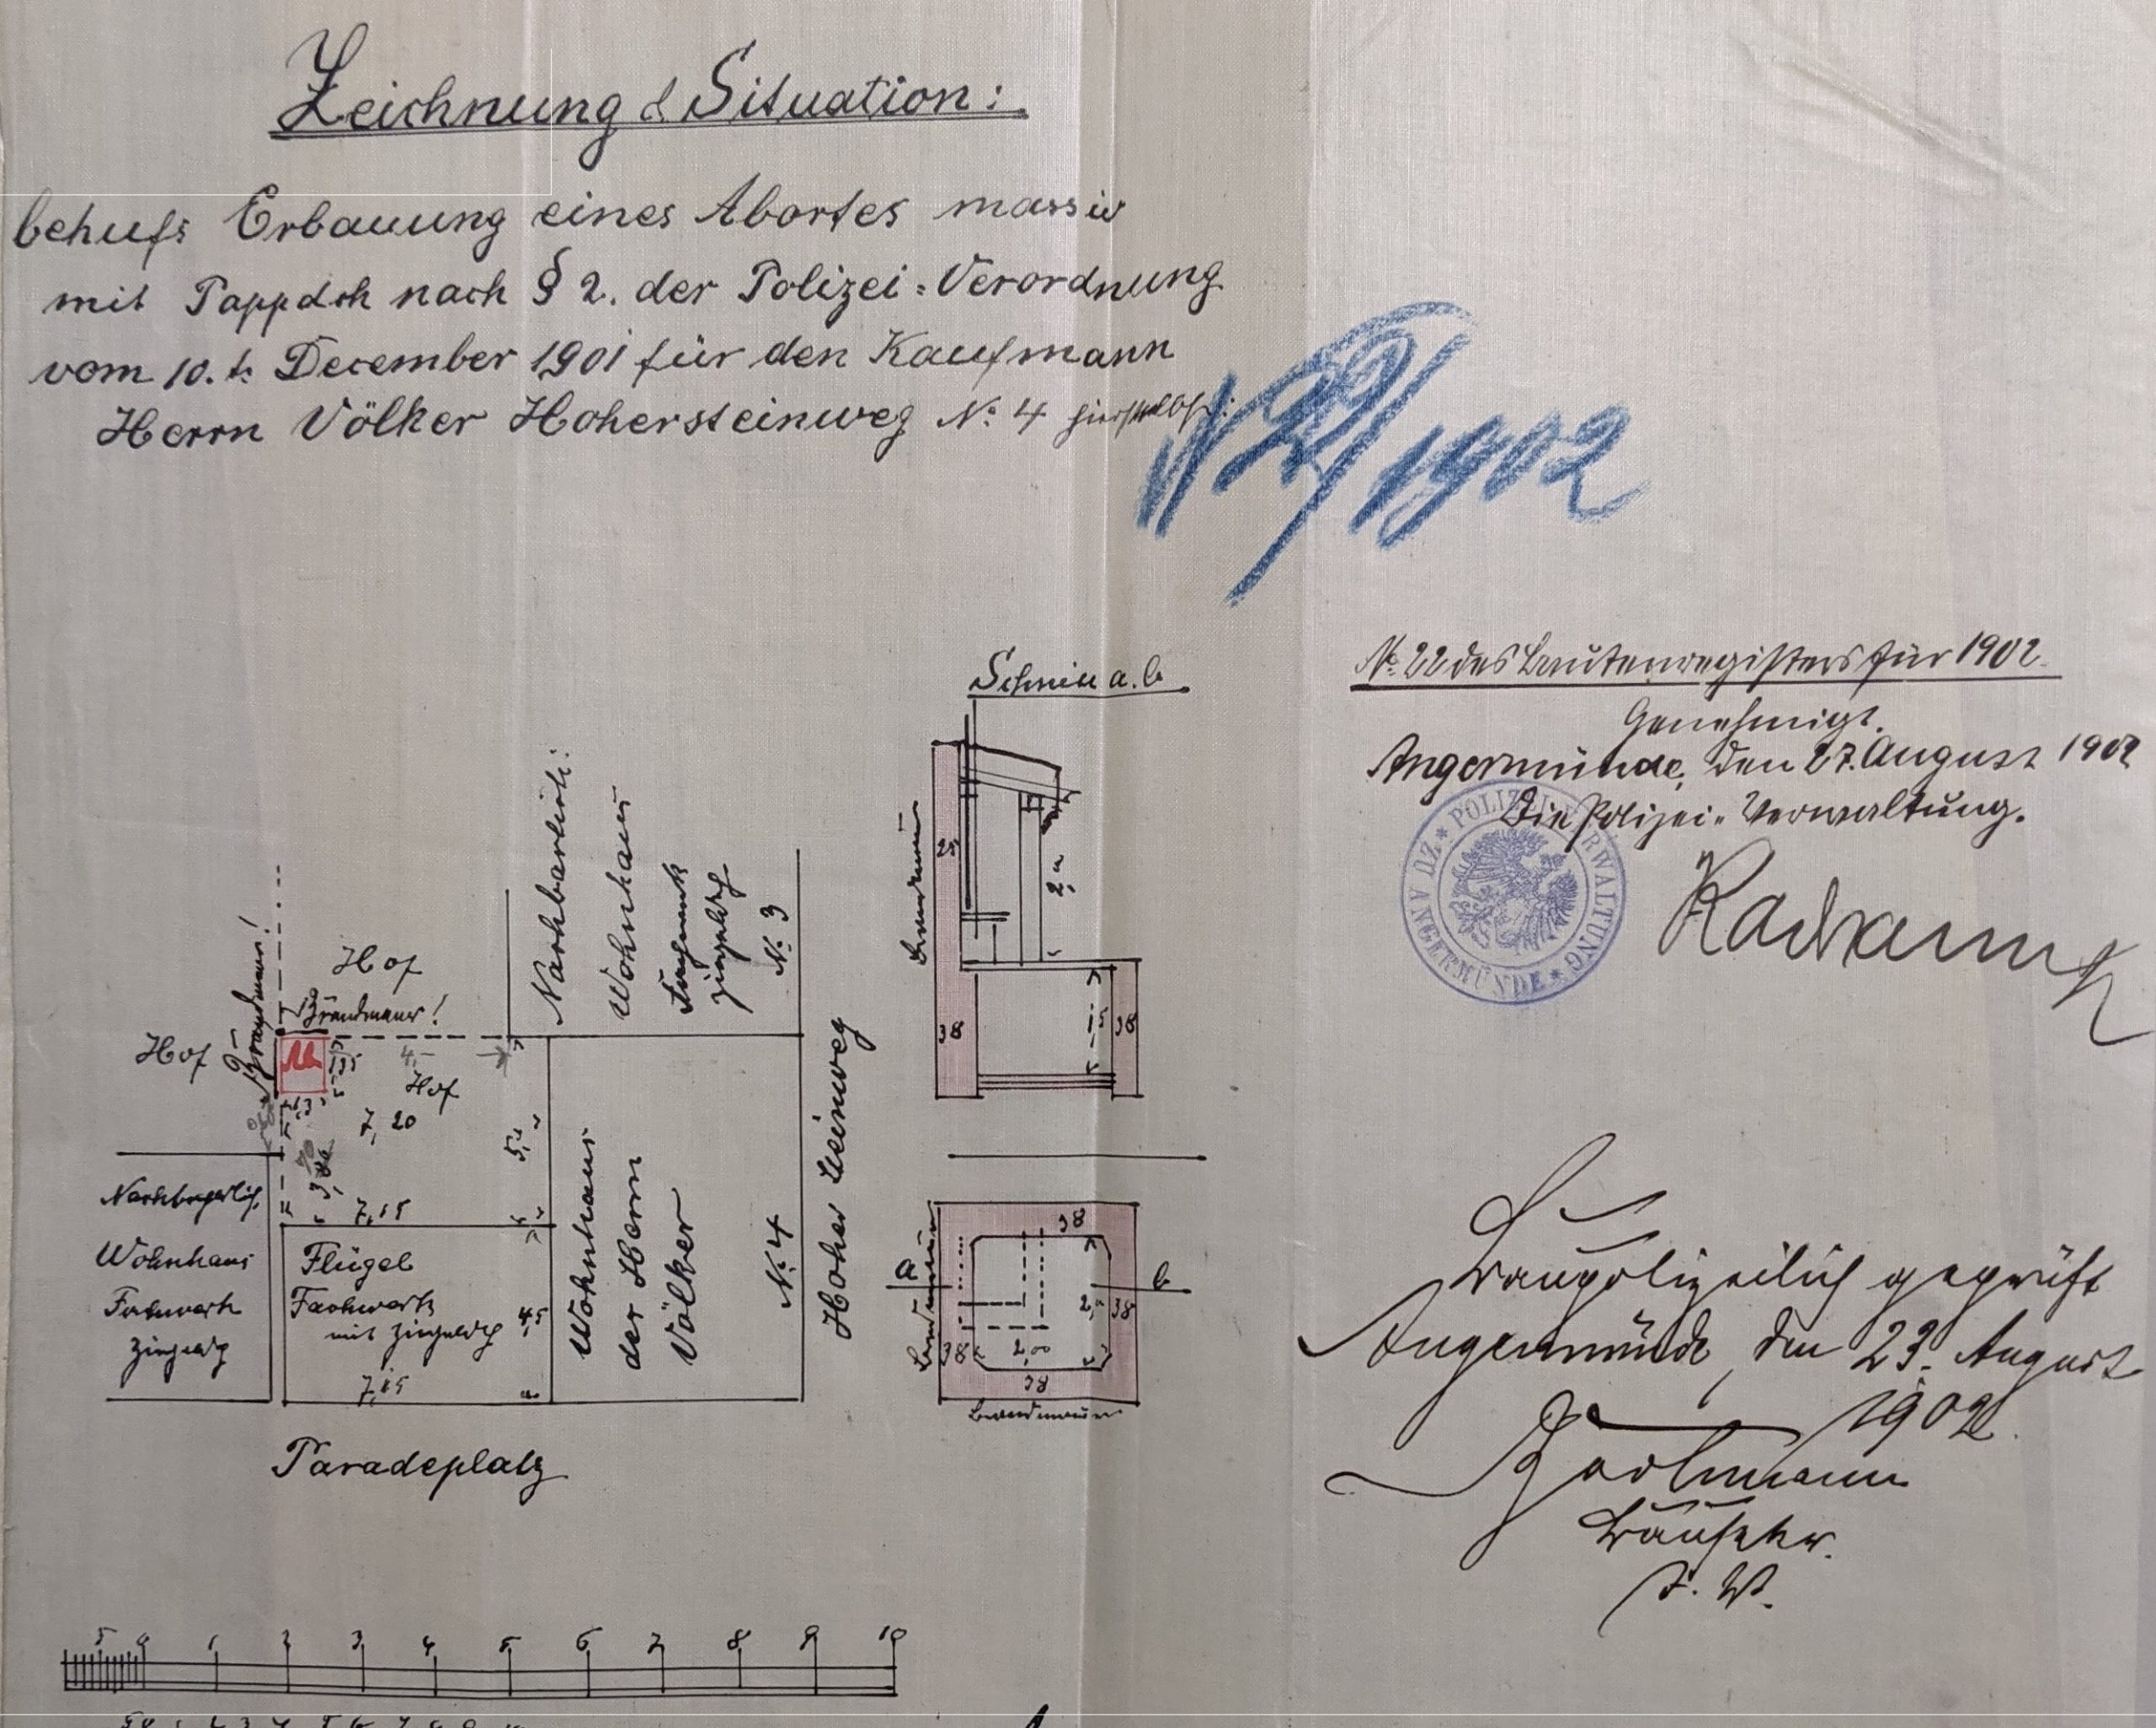 Zeichnung & Situation:
behufs Erbauung eines Abortes massiv
mit Pappdch nach § 2. der Polizei=Verordnung
vom 10. t. December 1901 für den Kaufmann
Herrn Völker Hohersteinweg No. 4 hierselbst:
N 22/1902
Schnitt a.b
No. 22 des Bautenregisters für 1902.
Genehmigt.
Angermünde, den 27. August 1902
Die Polizei-Verwaltung.
POLIZEI VERWALTUNG
ZU ANGERMÜNDE
Brandmauer
25
2,-
38
38
Nachbarlich:
Wohnhaus
Ziegeldch
No. 3
Hof
Brandmauer!
Brandmauer!
Hof
Ab
1,35
4,-
Hof
1,3
7,20
5,-
7,15
Nachbarlich.
Wohnhaus
Fachwerk
Ziegeldch
Flügel
Fachwerk
mit Ziegeldch
4,5
7,15
Wohnhaus
der Herrn
Völker
No. 4
Hoher Steinweg
Brandmauer
38
a
b
2,-
38
38
2,00
38
Brandmauer
Paradeplatz
Baupolizeilich geprüft
Angermünde, den 23. August
1902.
5 0 1 2 3 4 5 6 7 8 9 10